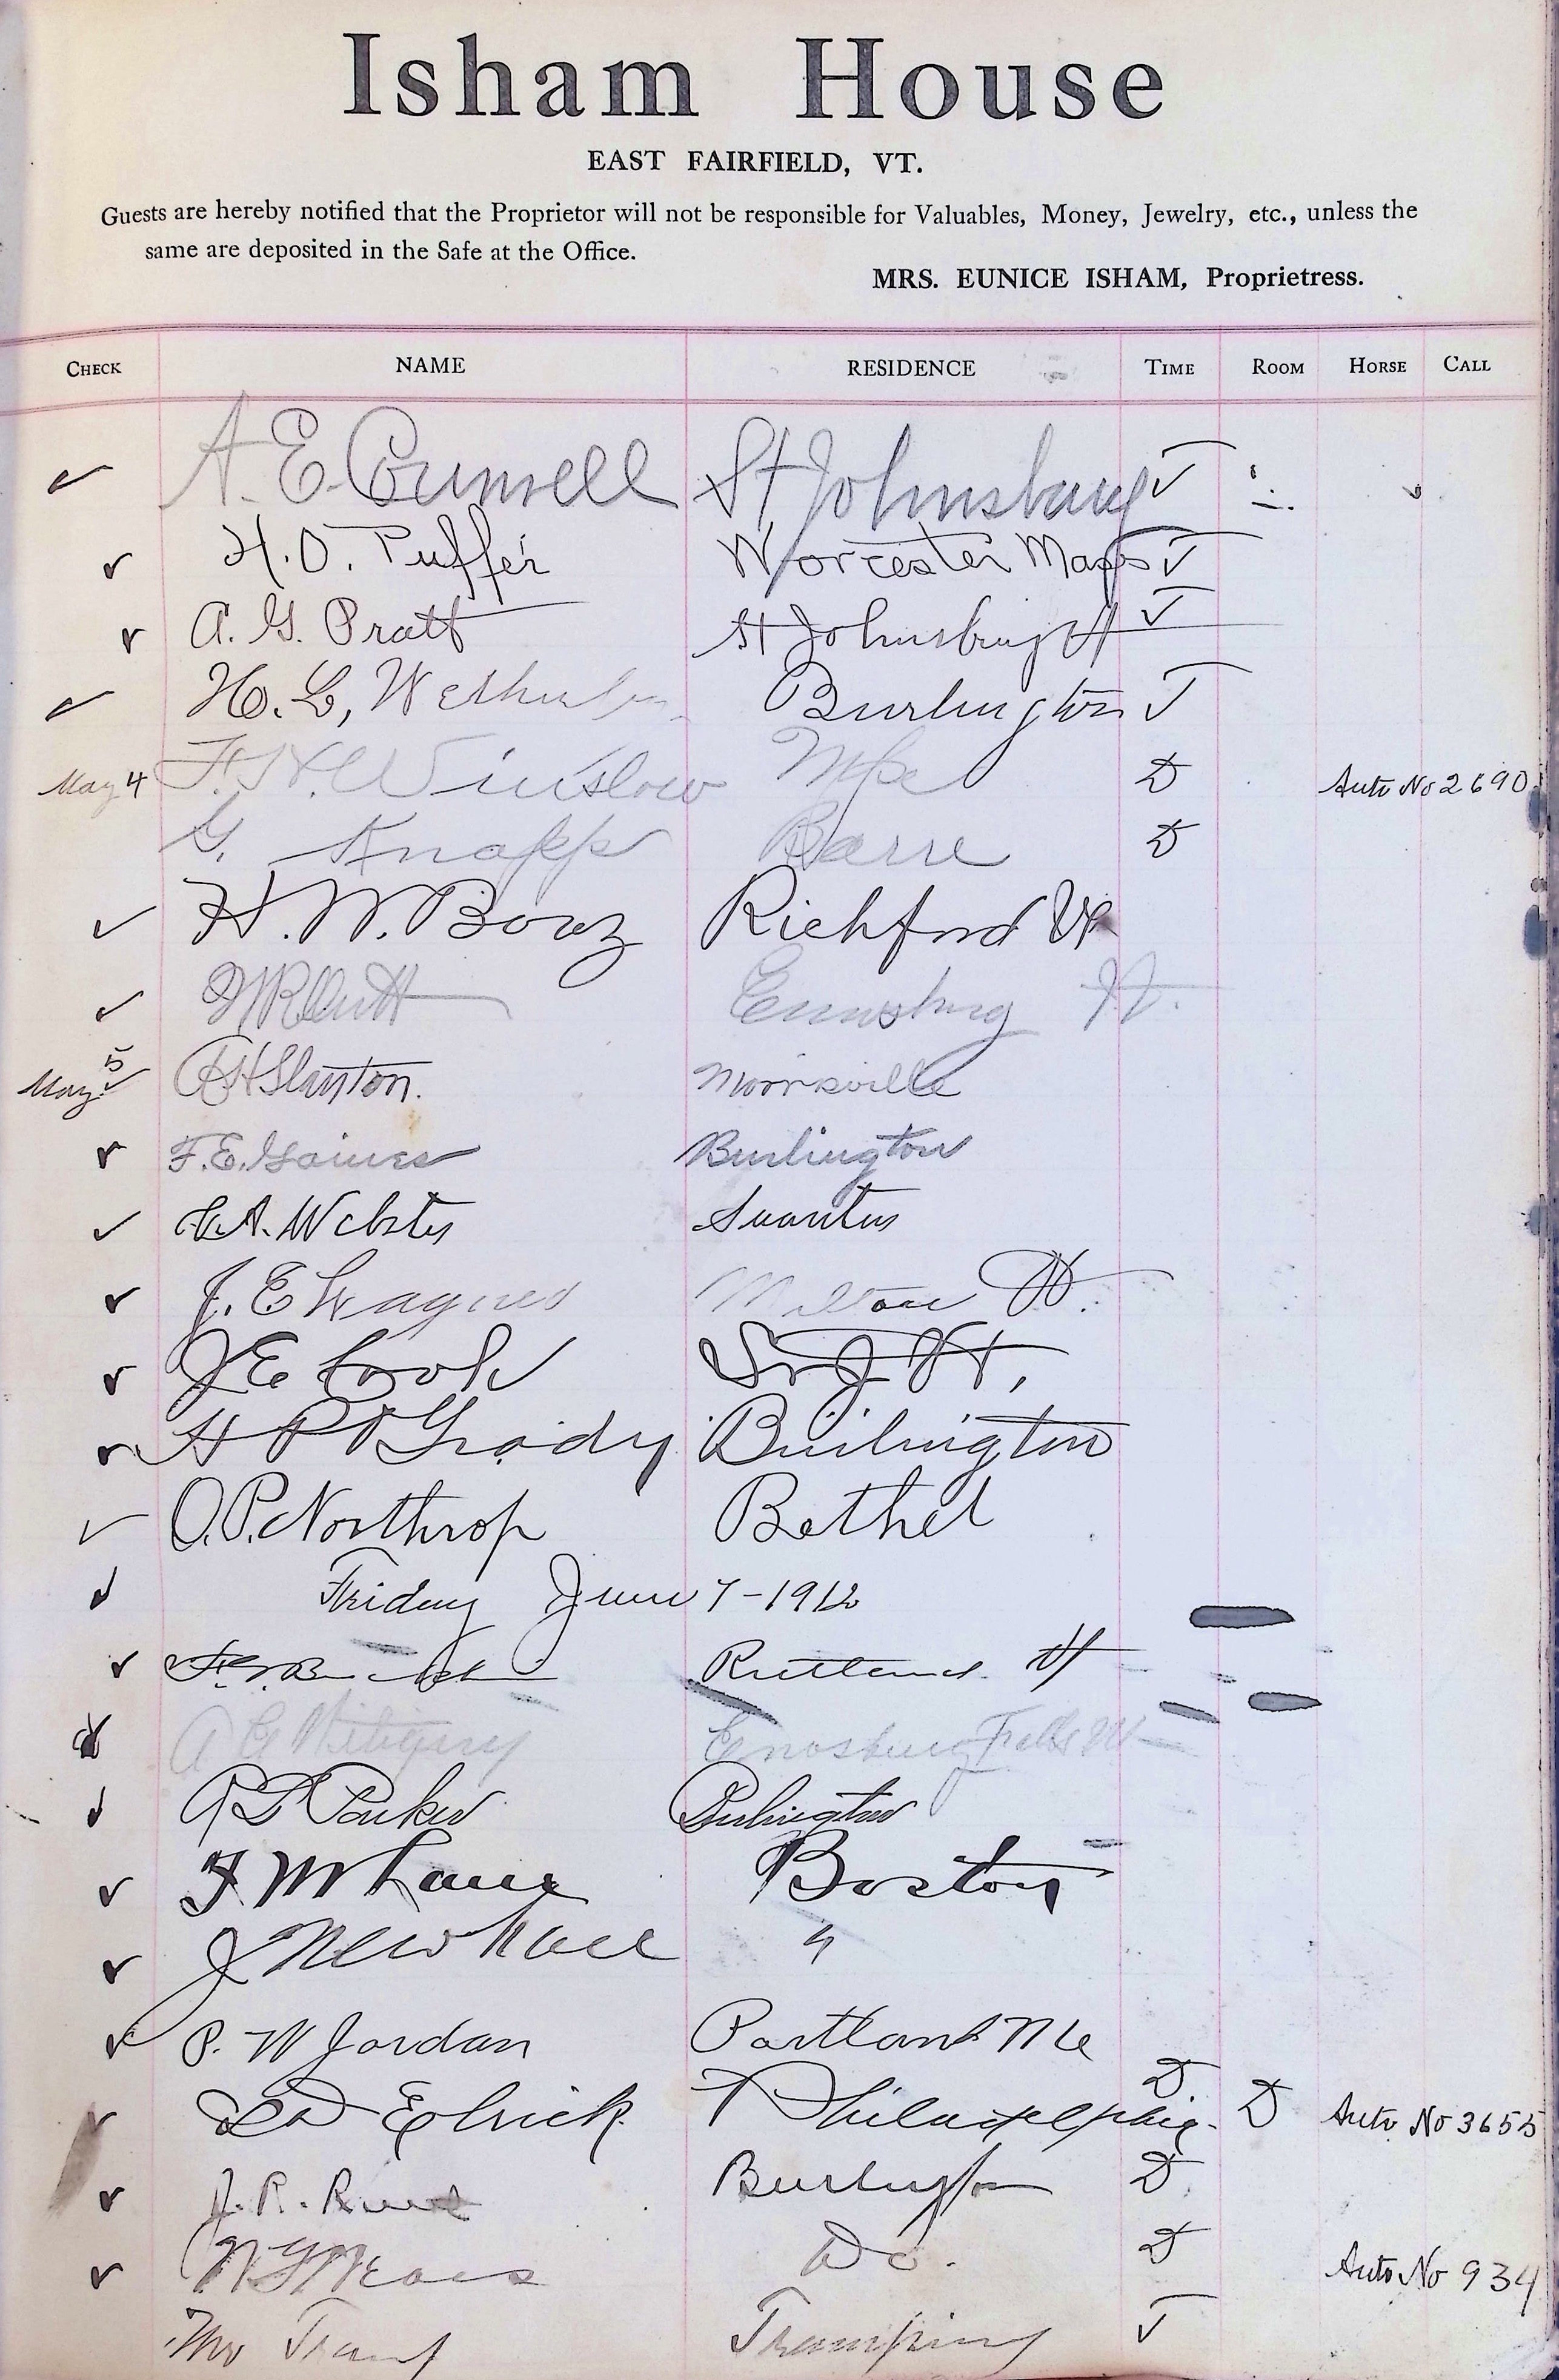 Isham House
EAST FAIRFIELD, VT.
Guests are hereby notified that the Proprietor will not be responsible for Valuables, Money, Jewelry, etc., unless the
same are deposited in the Safe at the Office.
MRS. EUNICE ISHAM, Proprietress.
CHECK NAME RESIDENCE TIME ROOM HORSE CALL
A. E. St Johnsbury T
H. O. Puffer Worcester Mass T
A. G. Pratt St Johnsbury Vt T
H. L, Burlington T
May 4 F. H. Winslow D Auto No 2690
G. Knapp Barre D
H. W. Richford Vt
Enosburg Vt.
May 5 Morrisville
F. E. Gaines Burlington
A. Webster Swanton
J. E Wagner Milton Vt.
J E Cook St J Vt,
H P Grady Burlington
O. P. Northrop Bethel
Friday June 7-1912
Rutland Vt
A G Enosburg Falls Vt
Parker Burlington
F M Lane Boston
J Newhall "
P. W Jordan Portland Me
D
Philadelphia. D Auto No 3655
J. R. Burlington D
Do. D Auto No 934
Tramp Tramping T